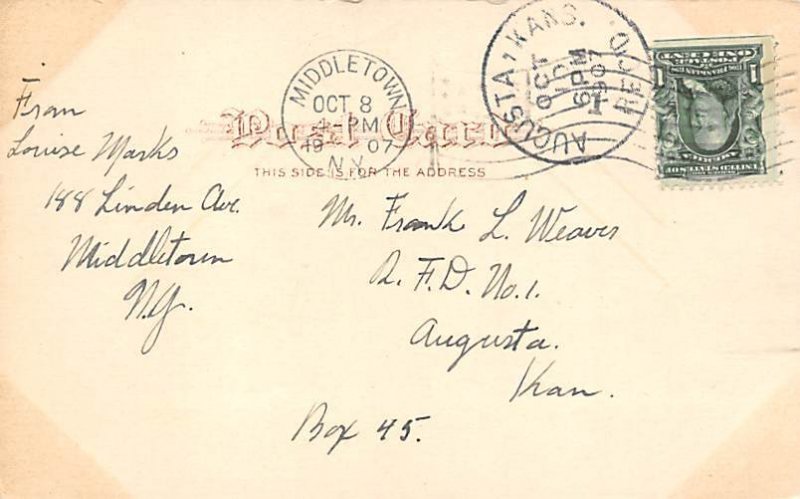 From
Louise Marks
188 Linden Ave.
Middletown
N.Y.
MIDDLETOWN
OCT 8
4-PM
19 07
N.Y.
AUGUSTA, KANS.
OCT
10
6PM
1907
REC'D
Post Card
THIS SIDE IS FOR THE ADDRESS
Mr. Frank L. Weaver
R. F. D. No. 1.
Augusta.
Kan.
Box 45.